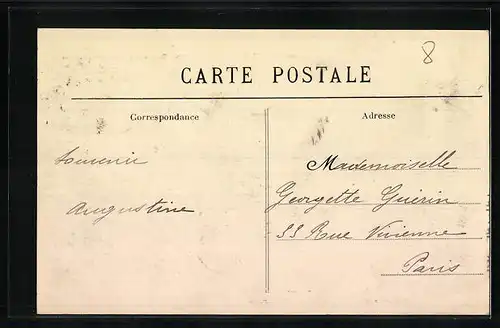 8
CARTE POSTALE
Correspondance
Adresse
Souvenir
Augustine
Mademoiselle
Georgette Guérin
33 Rue Vivienne
Paris